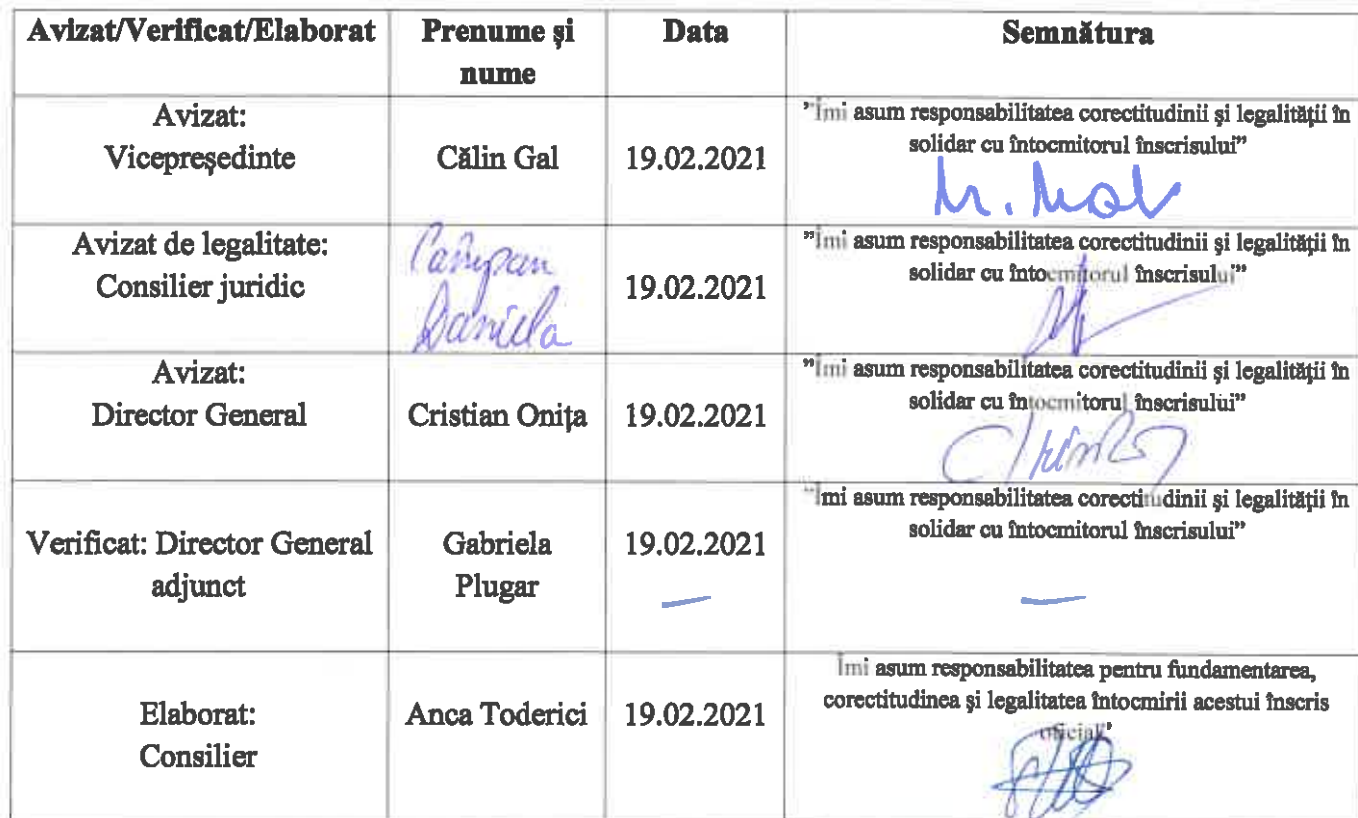 Avizat/Verificat/Elaborat
Prenume și
nume
Data
Semnătura
Avizat:
Vicepreședinte
Călin Gal
19.02.2021
"Îmi asum responsabilitatea corectitudinii și legalității în
solidar cu întocmitorul înscrisului"
Avizat de legalitate:
Consilier juridic
Câmpan
Daniela
19.02.2021
"Îmi asum responsabilitatea corectitudinii și legalității în
solidar cu întocmitorul înscrisului"
Avizat:
Director General
Cristian Onița
19.02.2021
"Îmi asum responsabilitatea corectitudinii și legalității în
solidar cu întocmitorul înscrisului"
Verificat: Director General
adjunct
Gabriela
Plugar
19.02.2021
"Îmi asum responsabilitatea corectitudinii și legalității în
solidar cu întocmitorul înscrisului"
Elaborat:
Consilier
Anca Toderici
19.02.2021
Îmi asum responsabilitatea pentru fundamentarea,
corectitudinea și legalitatea întocmirii acestui înscris
oficial"